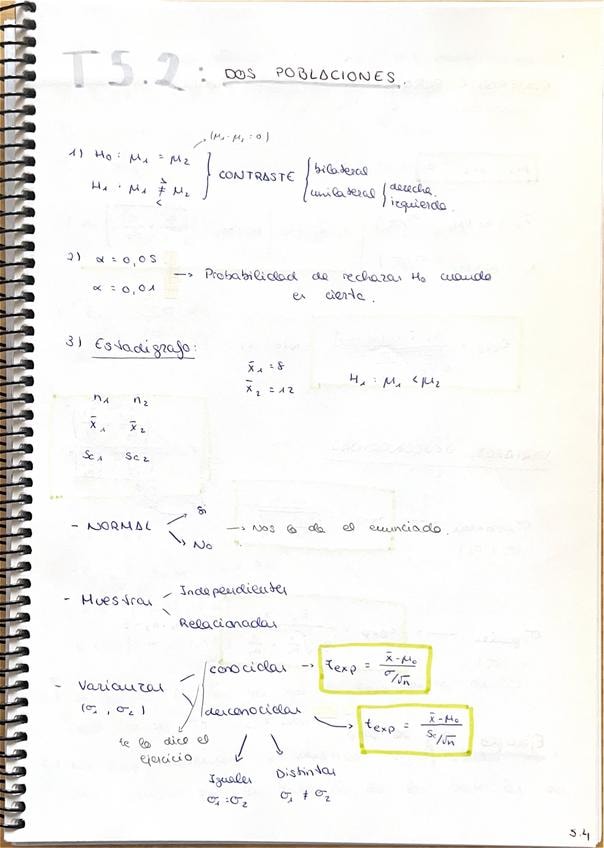 T 5.2 : DOS POBLACIONES.
(μ₁ - μ₂ = 0)
1) H₀ : μ₁ = μ₂
H₁ : μ₁ ≠ μ₂
>
<
CONTRASTE
bilateral
unilateral
derecha.
izquierda.
2) α = 0,05
α = 0,01
→ Probabilidad de rechazar H₀ cuando
es cierta.
3) Estadígrafo:
x̄₁ = 8
x̄₂ = 12
H₁ : μ₁ < μ₂
n₁ n₂
x̄₁ x̄₂
Sc₁ Sc₂
- NORMAL
Si
No
→ Nos lo da el enunciado.
- Muestras
Independientes
Relacionadas
- Varianzas
(σ₁, σ₂)
conocidas → zexp = x̄ - μ₀ / σ/√n
desconocidas → texp = x̄ - μ₀ / Sc/√n
te lo dice el
ejercicio
Iguales
σ₁ = σ₂
Distintas
σ₁ ≠ σ₂
5.4